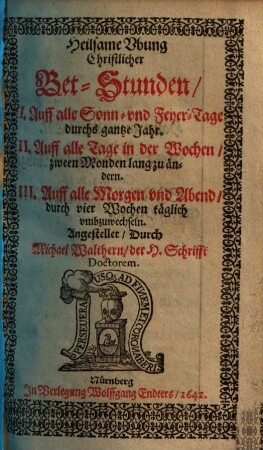 Heilsame Vbung
Christlicher
Bet-Stunden/
I. Auff alle Sonn- vnd Feyer-Tage
durchs gantze Jahr.
II. Auff alle Tage in der Wochen/
zween Monden lang zu än-
dern.
III. Auff alle Morgen vnd Abend/
durch vier Wochen täglich
vmbzuwechseln.
Angestellet/ Durch
Michael Walthern/ der H. Schrifft
Doctorem.
Nürnberg
In Verlegung Wolffgang Endters/ 1642.